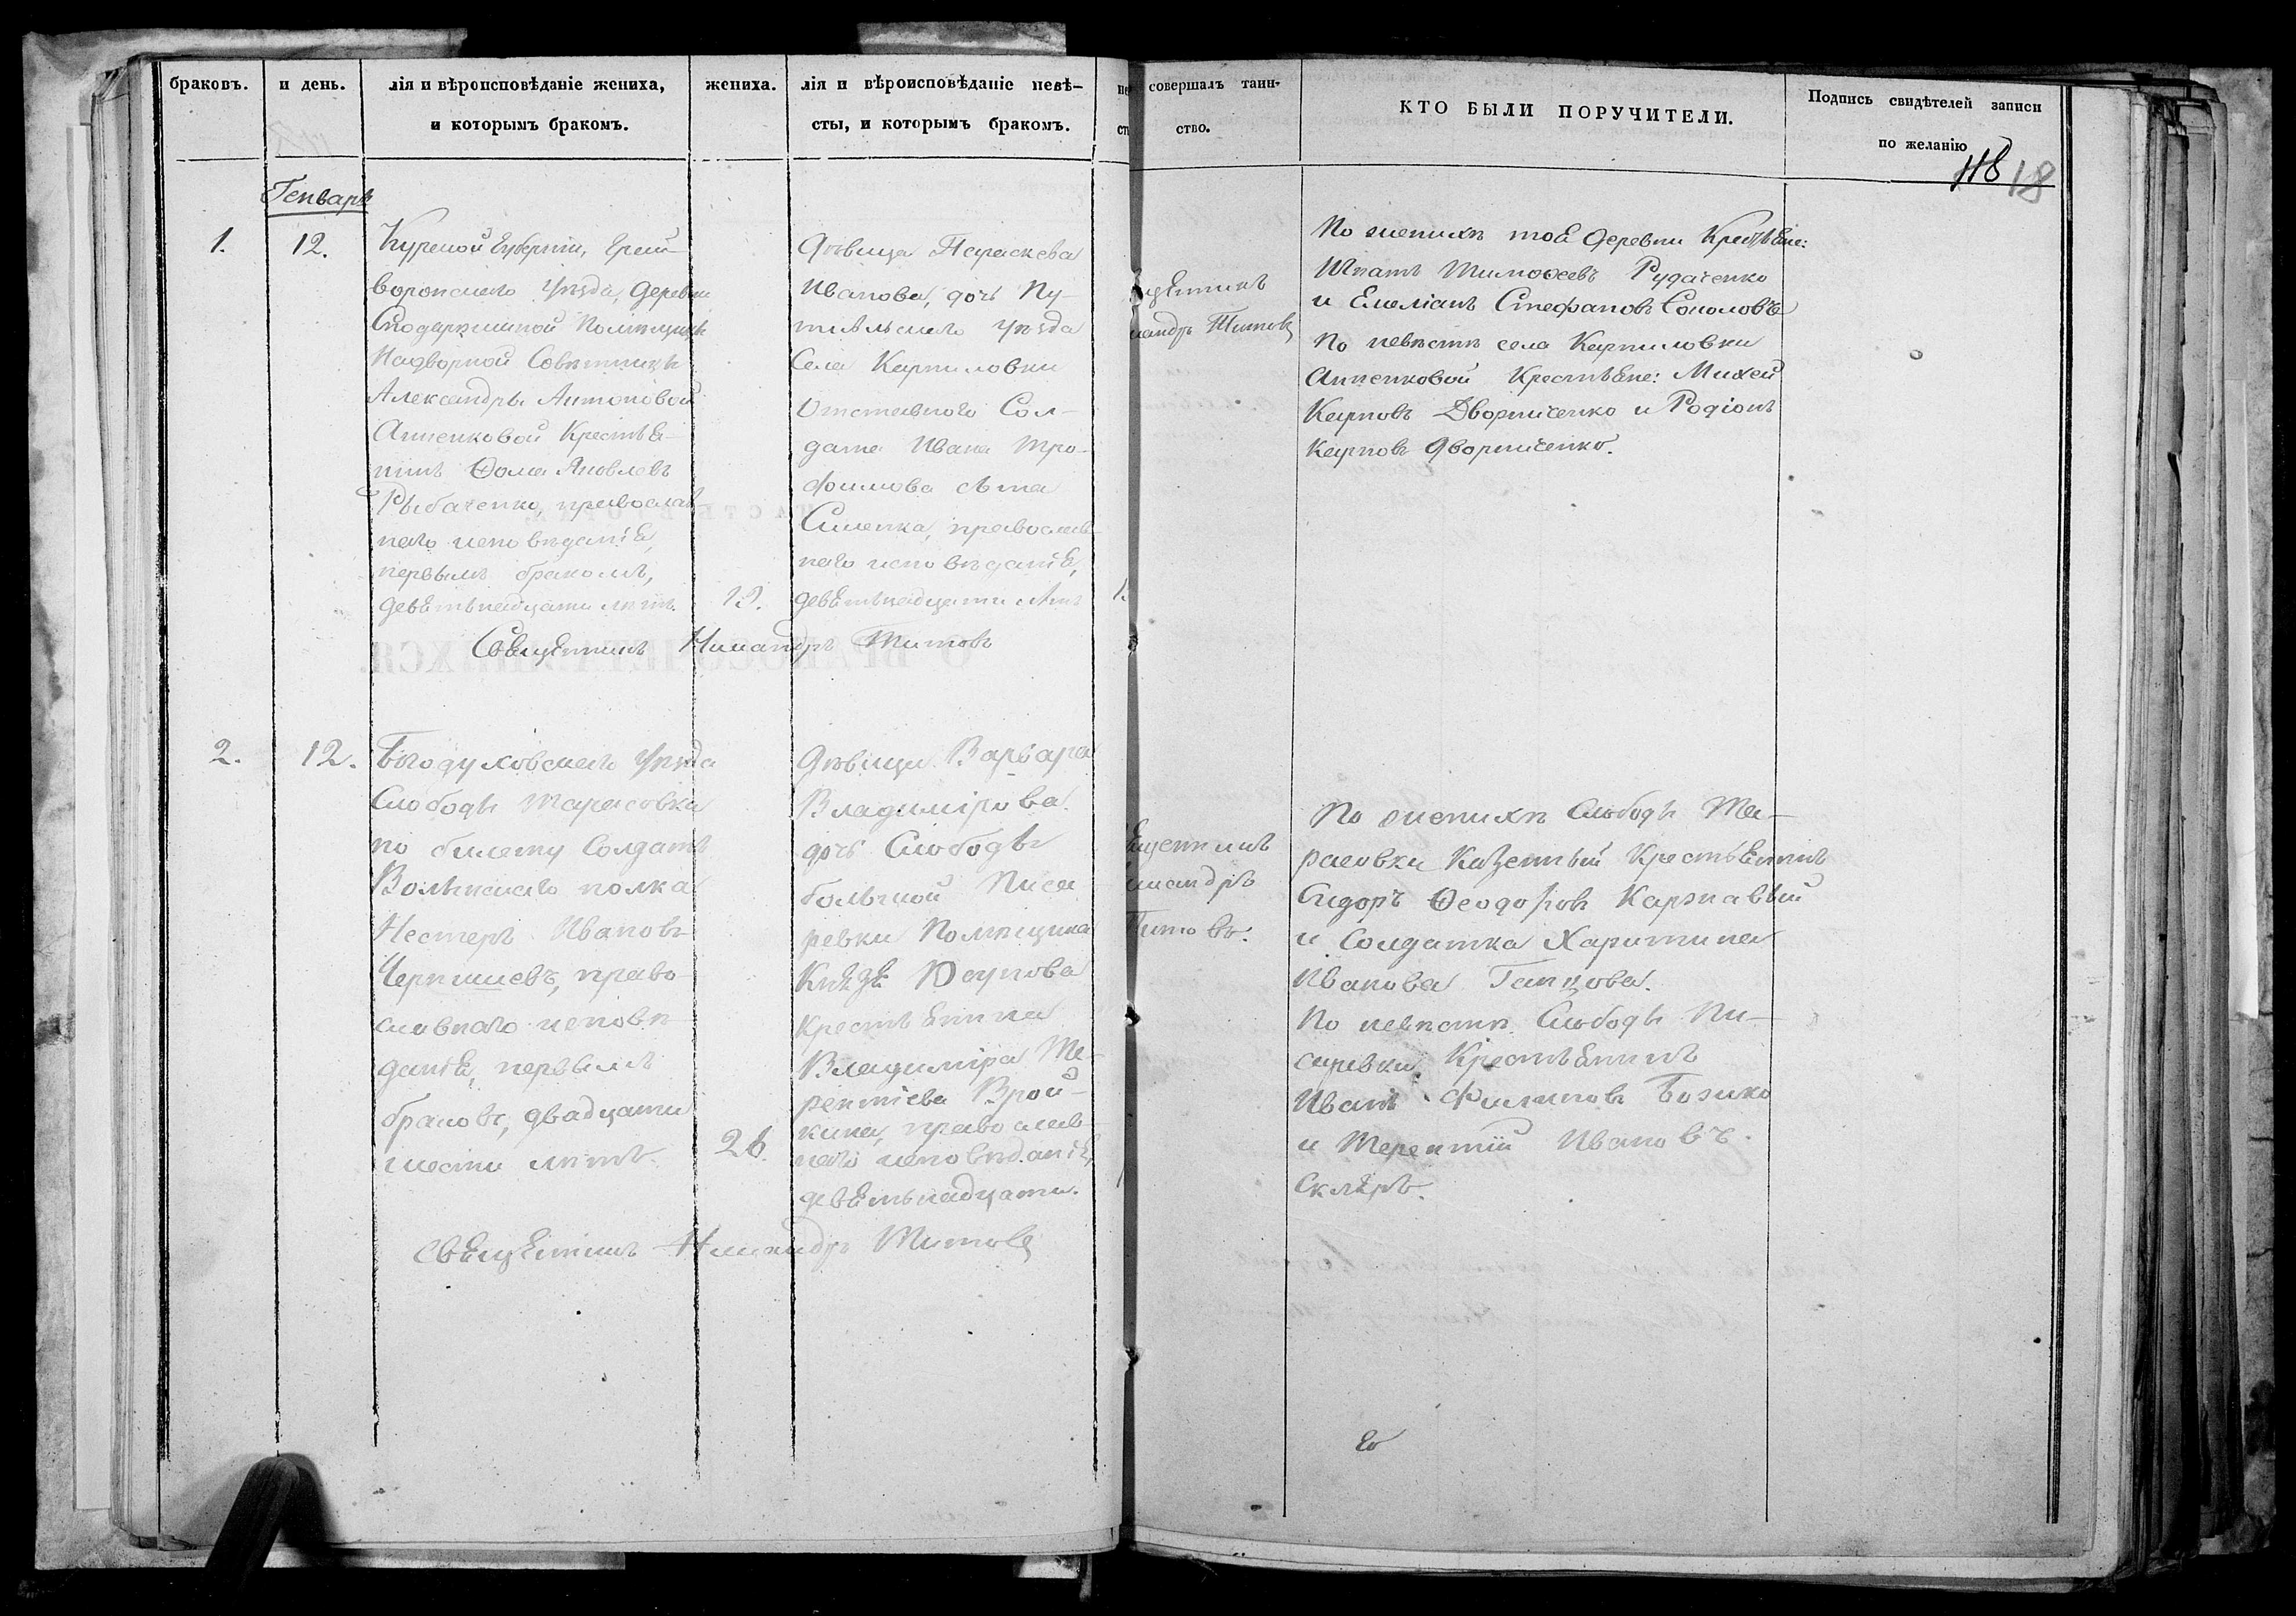 браковъ.
и день.
лія и вѣроисповѣданіе жениха,
и которымъ бракомъ.
жениха.
лія и вѣроисповѣданіе невѣ-
сты, и которымъ бракомъ.
совершалъ таин-
ство.
КТО БЫЛИ ПОРУЧИТЕЛИ.
Подпись свидѣтелей записи
по желанію
118 18
Генварь
1.
12.
Курской Губерніи, Грай-
воронскаго Уѣзда, деревни
Помѣщицы
Надворной Совѣтницы
Александры Антоновой
Анненковой Крестья-
нинъ Ѳома Яковлевъ
Рыбаченко, православ-
наго исповѣданія,
первымъ бракомъ,
девятьнадцати лѣтъ.
19.
Дѣвица Параскева
Иванова, дочь Пу-
тивльскаго Уѣзда
Села Карпиловки
Отставного Сол-
дата Ивана Тро-
фимова сына
православ
наго исповѣданія,
девятьнадцати лѣтъ
Священникъ Никандръ Титовъ
щенникъ
кандръ Титовъ
По женихѣ той деревни Крестьяне:
Игнатъ Тимоѳеевъ Рудаченко
и Емеліанъ Стефановъ Соколовъ
По невѣстѣ села Карпиловки
Анненковой Крестьяне: Михей
Карповъ Дворниченко и Родіонъ
Карповъ Дворниченко.
2.
12.
Богодуховскаго Уѣзда
Слободы Тарасовки
по билету Солдатъ
Волынскаго полка
Нестеръ Ивановъ
Чернышевъ, право
славнаго исповѣ
данія, первымъ
бракомъ, двадцати
шести лѣтъ
26.
Дѣвица Варвара
Владимірова
дочь Слободы
большой Писа
ревки Помѣщика
Князя Юсупова
Крестьянина
Владиміра Те-
рентіева
православ
наго исповѣданія,
девятьнадцати.
Священникъ Никандръ Титовъ
ященникъ
икандръ
Титовъ.
По женихѣ Слободы Та-
расовки Казенный Крестьянинъ
Сидоръ Ѳеодоровъ Каржавый
и Солдатка Харитина
Иванова Ганцова.
По невѣстѣ Слободы Пи-
саревки Крестьянинъ
Иванъ Филиповъ Божко
и Терентій Ивановъ
Скляръ.